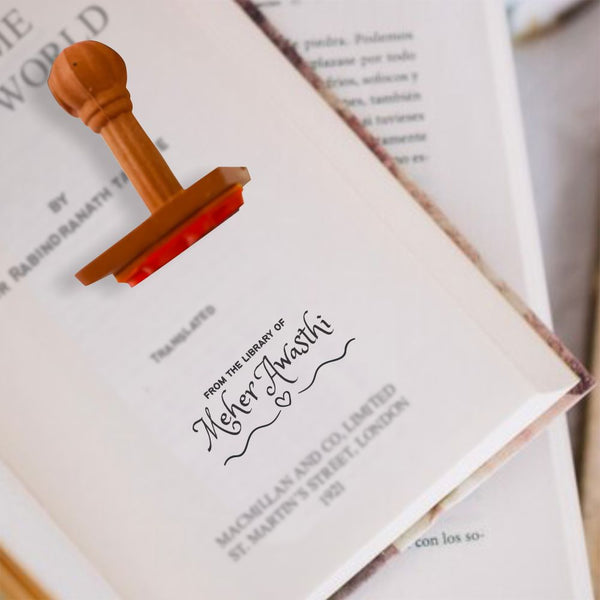 WORLD
BY
RABINDRANATH
TRANSLATED
FROM THE LIBRARY OF
Meher Awasthi
MACMILLAN AND CO, LIMITED
ST. MARTIN'S STREET, LONDON
1921
piedra. Podemos
plazase por todo
fríos, sofocos y
también
si tuvieses
con los so-